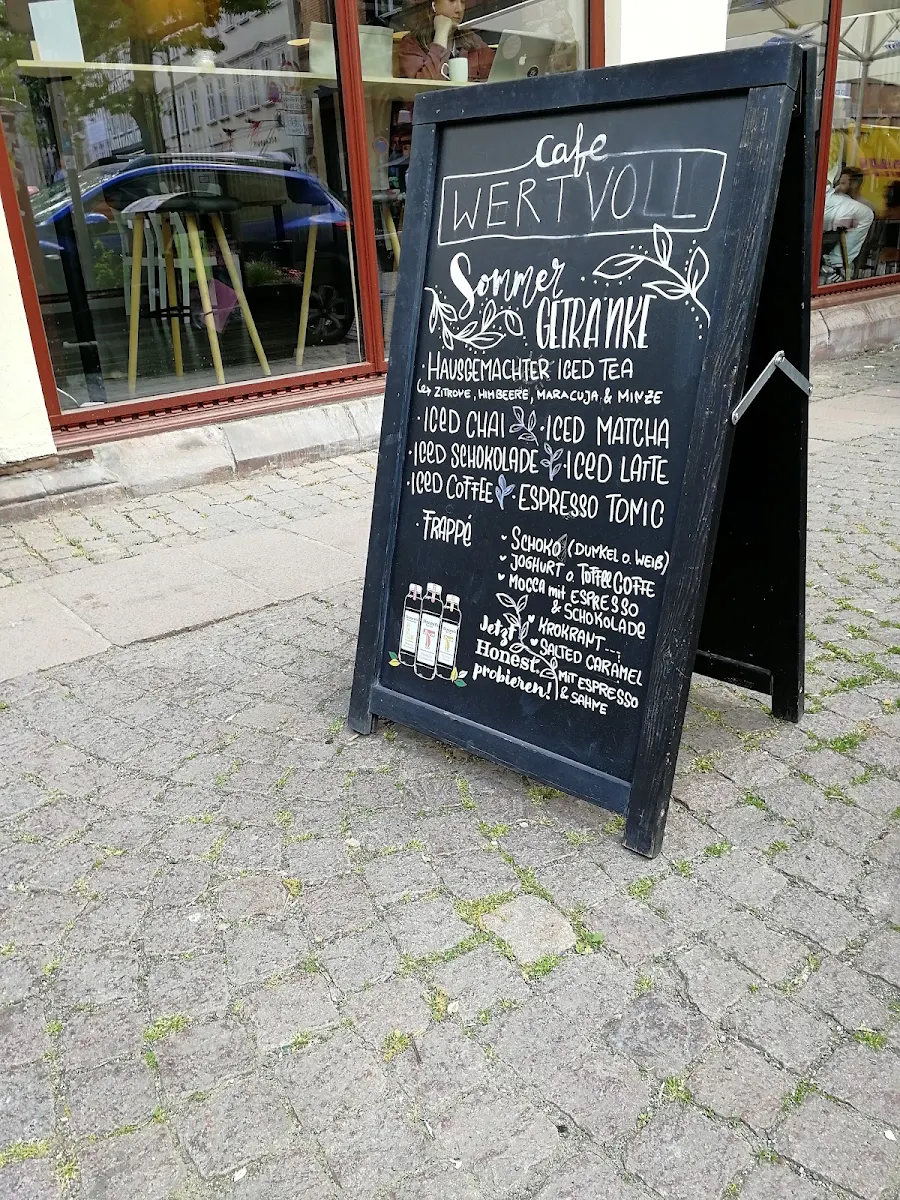 Cafe
WERTVOLL
Sommer
GETRÄNKE
HAUSGEMACHTER ICED TEA
↳ ZITRONE, HIMBEERE, MARACUJA & MINZE
· ICED CHAI · ICED MATCHA
· ICED SCHOKOLADE · ICED LATTE
· ICED COFFEE · ESPRESSO TONIC
· FRAPPÉ
♥ SCHOKO (DUNKEL o. WEIẞ)
♥ JOGHURT o. TOFFEE COFFE
♥ MOCCA mit ESPRESSO
& SCHOKOLADE
♥ KROKANT
♥ SALTED CARAMEL
MIT ESPRESSO
& SAHNE
Jetzt
Honest
probieren!